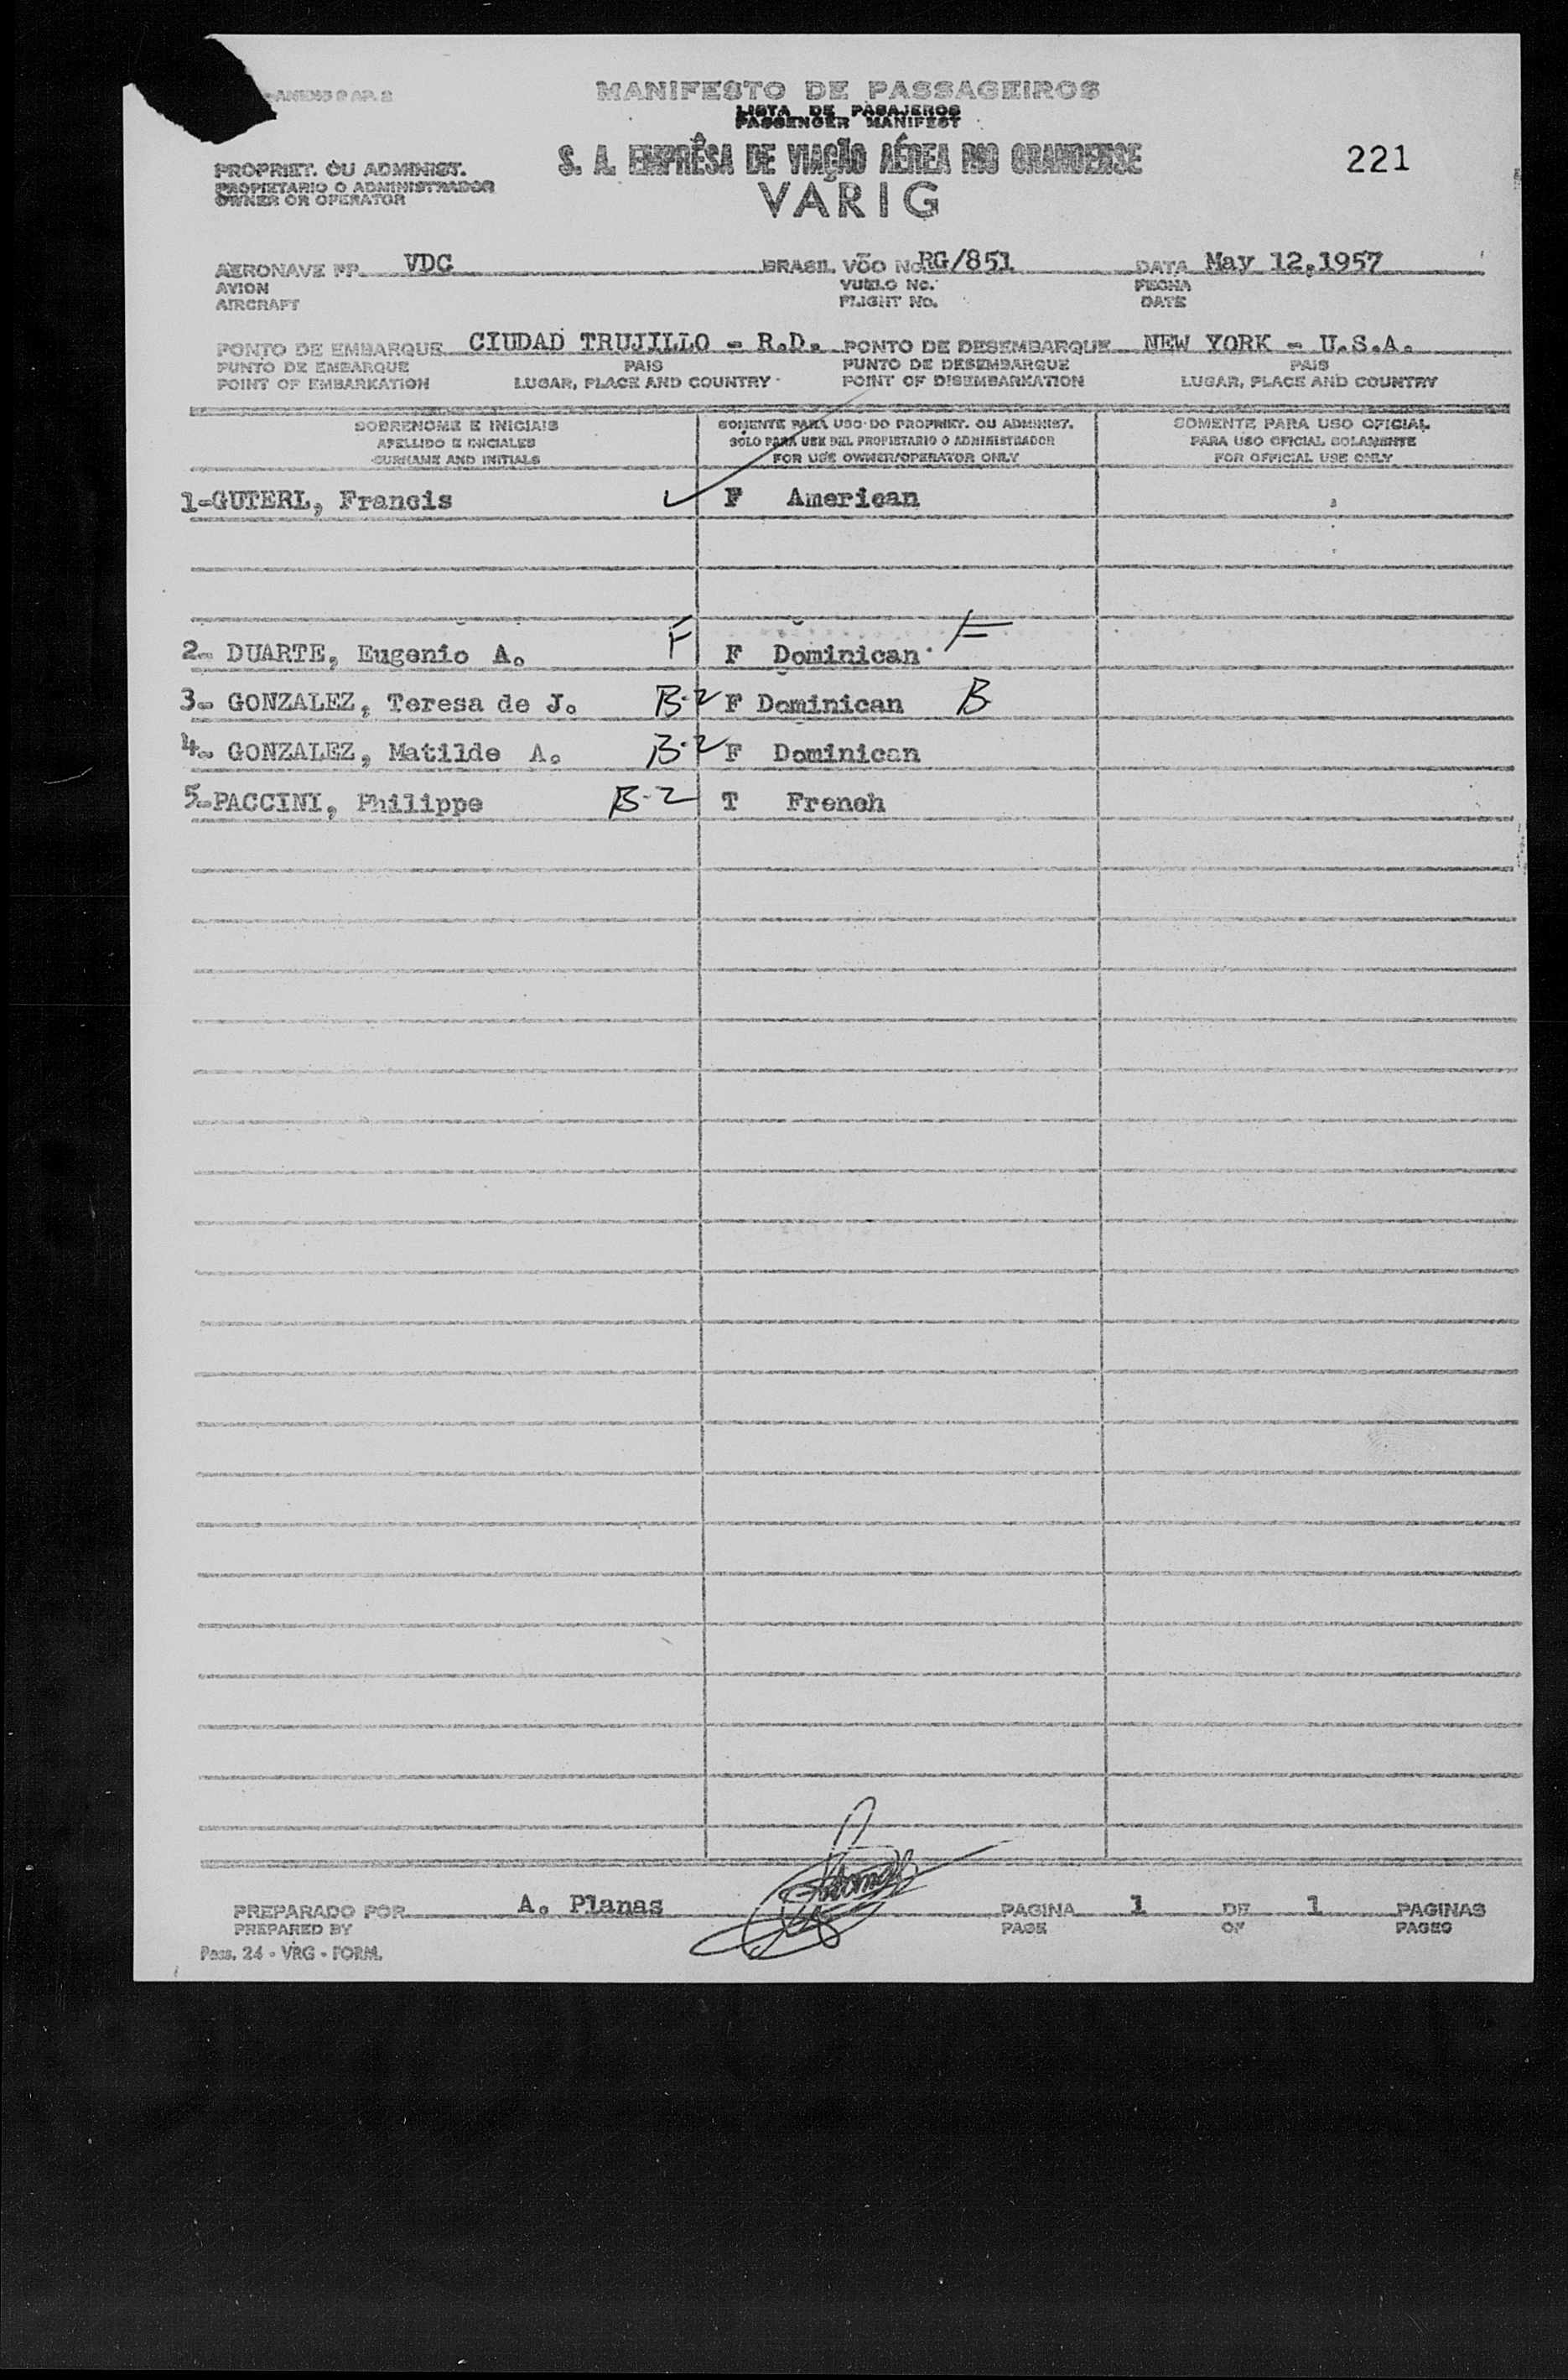 ANEXO 9 AP. 2
MANIFESTO DE PASSAGEIROS
LISTA DE PASAJEROS
PASSENGER MANIFEST
S. A. EMPRÊSA DE VIAÇÃO AÉREA RIO GRANDENSE
VARIG
221
PROPRIET. OU ADMINIST.
PROPIETARIO O ADMINISTRADOR
OWNER OR OPERATOR
AERONAVE PP VDC BRASIL VÔO No. RG/851 DATA May 12,1957
AVION VUELO No. FECHA
AIRCRAFT FLIGHT No. DATE
PONTO DE EMBARQUE CIUDAD TRUJILLO - R.D. PONTO DE DESEMBARQUE NEW YORK - U.S.A.
PUNTO DE EMBARQUE PAIS PUNTO DE DESEMBARQUE PAIS
POINT OF EMBARKATION LUGAR, PLACE AND COUNTRY POINT OF DISEMBARKATION LUGAR, PLACE AND COUNTRY
SOBRENOME E INICIAIS SOMENTE PARA USO DO PROPRIET. OU ADMINIST. SOMENTE PARA USO OFICIAL
APELLIDO E INICIALES SOLO PARA USE DEL PROPIETARIO O ADMINISTRADOR PARA USO OFICIAL SOLAMENTE
SURNAME AND INITIALS FOR USE OWNER/OPERATOR ONLY FOR OFFICIAL USE ONLY
1-GUTERL, Francis F American
2- DUARTE, Eugenio A. F F Dominican F
3- GONZALEZ, Teresa de J. B-2 F Dominican B
4- GONZALEZ, Matilde A. B-2 F Dominican
5-PACCINI, Philippe B-2 T French
PREPARADO POR A. Planas PAGINA 1 DE 1 PAGINAS
PREPARED BY PAGE OF PAGES
Pass. 24 - VRG - FORM.